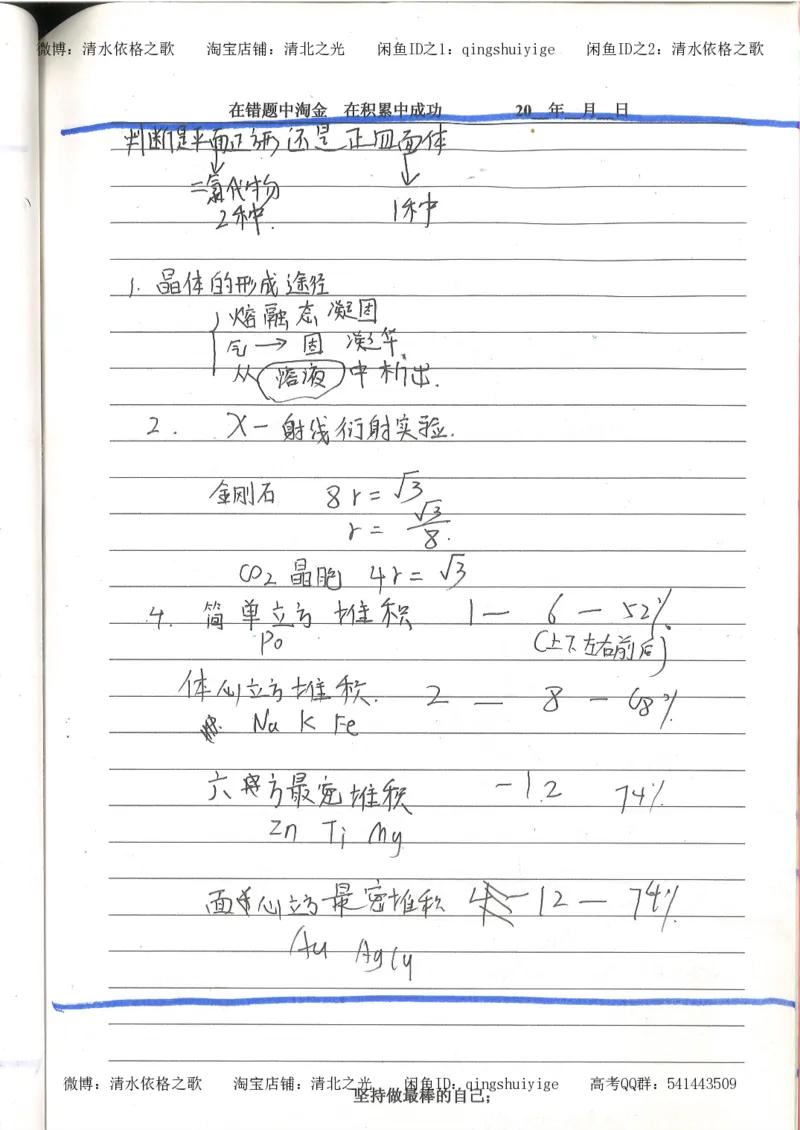 微博：清水依格之歌 淘宝店铺：清北之光 闲鱼ID之1：qingshuiyige 闲鱼ID之2：清水依格之歌
在错题中淘金 在积累中成功 20 年 月 日
判断是平面正方形还是正四面体
↓ ↓
二氯代物
2种. 1种
1. 晶体的形成途径
熔融态凝固
气→固 凝华.
从溶液中析出.
2. X-射线衍射实验.
金刚石 8r=√3
r=√3/8.
CO2晶胞 4r=√3
4. 简单立方堆积 1— 6—52%
Po (上下左右前后)
体心立方堆积. 2 — 8 — 68%
Na K Fe
六方最密堆积 -12 74%
Zn Ti Mg
面心立方最密堆积 —12— 74%
Au Ag Cu
微博：清水依格之歌 淘宝店铺：清北之光 闲鱼ID：qingshuiyige 高考QQ群：541443509
坚持做最棒的自己；